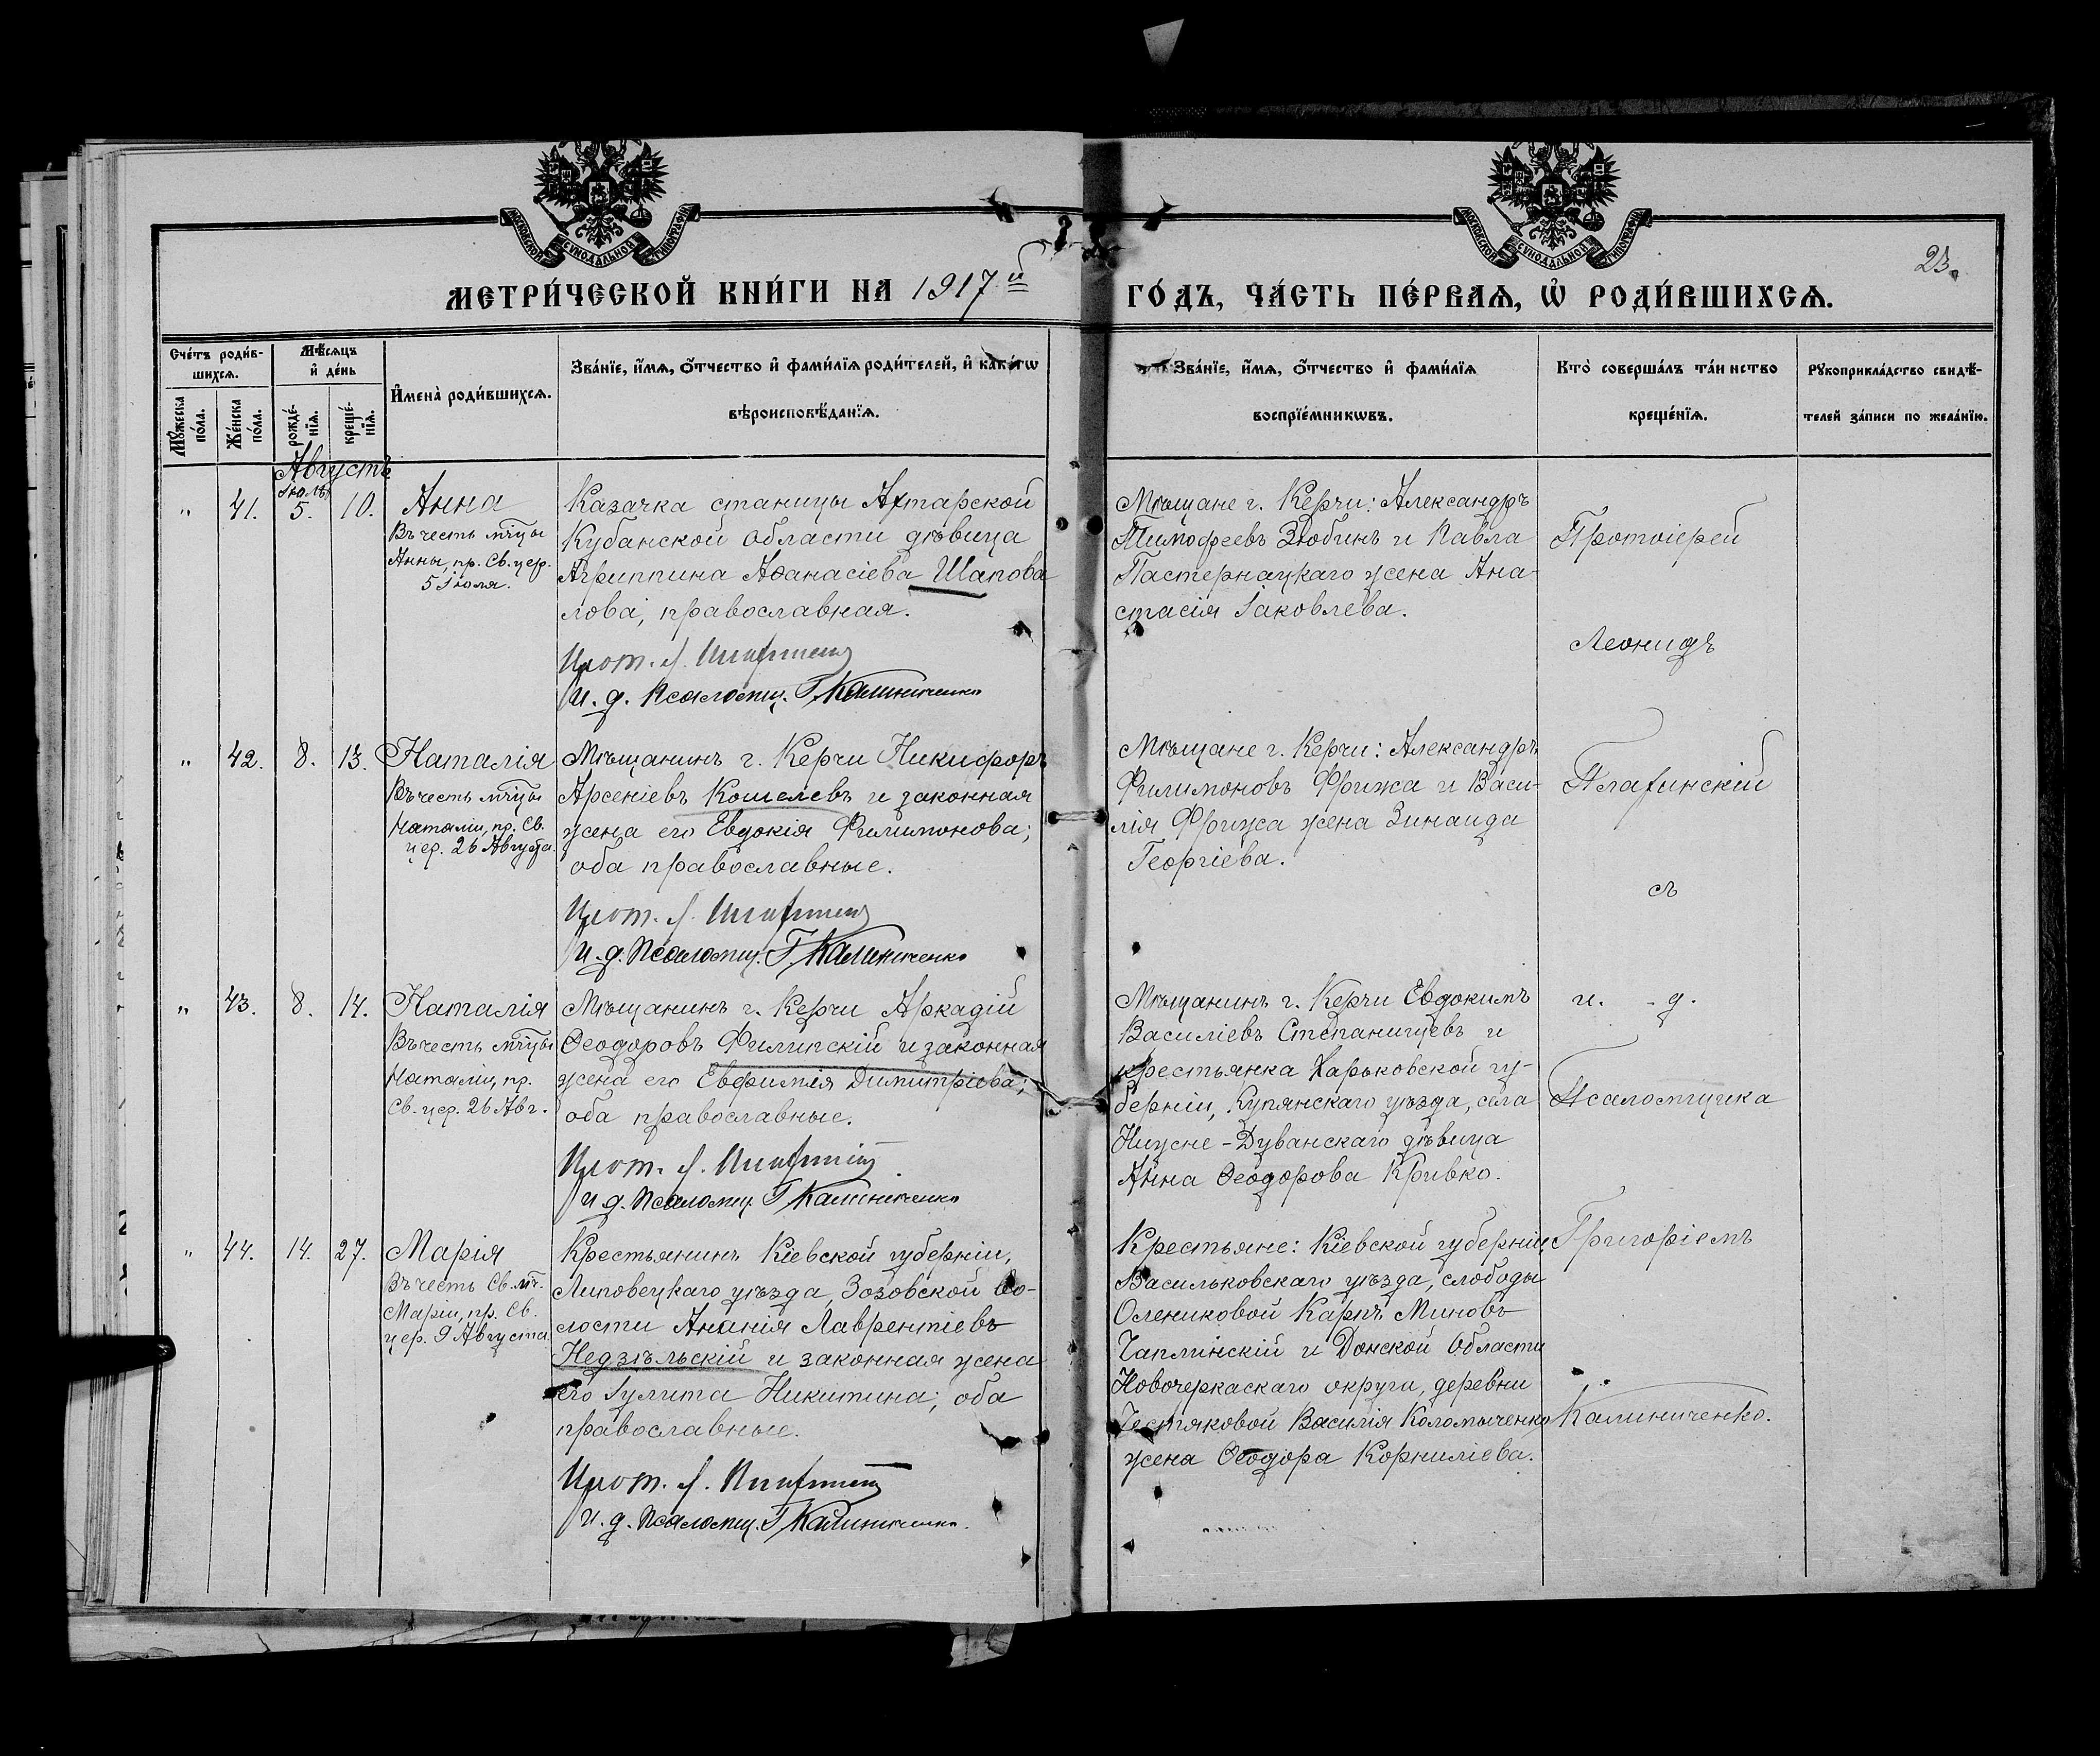 МОСКОВСКОЙ СѴНОДАЛЬНОЙ ТИПОГРАФІИ
МОСКОВСКОЙ СѴНОДАЛЬНОЙ ТИПОГРАФІИ
23.
МЕТРИ́ЧЕСКОЙ КНИ́ГИ НА 1917й
ГО́ДЪ, ЧА́СТЬ ПЕ́РВАѦ, Ѽ РОДИ́ВШИХСѦ.
Сче́тъ роди́в-
шихсѧ.
Мѣ́сѧцъ
и҆ де́нь
Мꙋ́жеска
по́ла.
Же́нска
по́ла.
рожде́-
нїѧ.
креще́-
нїѧ.
И҆мена̀ роди́вшихсѧ.
Зва́нїе, и҆́мѧ, ѻ҆́тчество и҆ фами́лїѧ роди́телей, и҆ како́гѡ
вѣроисповѣ́данїѧ.
Зва́нїе, и҆́мѧ, ѻ҆́тчество и҆ фами́лїѧ
воспрїе́мникѡвъ.
Кто̀ соверша́лъ та́инство
креще́нїѧ.
Рꙋкоприкла́дство свидѣ́-
телей за́писи по жела́нїю.
Августъ
Іюль
" 41. 5. 10. Анна
Въ честь мч̃цы
Анны, пр. Св. цер.
5 Іюля.
Казачка станицы Ахтарской
Кубанской области дѣвица
Агриппина Аѳанасіева Шапова
лова, православная.
Прот. Л.
И. д. Псаломщ. Г. Калиниченко
Мѣщане г. Керчи: Александръ
Тимофеевъ Зюбинъ и Павла
Пастернацкаго жена Ана-
стасія Іаковлева.
" 42. 8. 13. Наталія
Въ честь мч̃цы
Наталіи, пр. Св.
цер. 26 Августа.
Мѣщанинъ г. Керчи Никифоръ
Арсеніевъ Кошелевъ и законная
жена его Евдокія Филимонова;
оба православные.
Прот. Л.
И. д. Псаломщ. Г. Калиниченко
Мѣщане г. Керчи: Александръ
Филимоновъ Фрижа и Васи-
лія Фрижа жена Зинаида
Георгіева.
" 43. 8. 14. Наталія
Въ честь мч̃цы
Наталіи, пр.
Св. цер. 26 Авг.
Мѣщанинъ г. Керчи Аркадій
Ѳеодоровъ Филипскій и законная
жена его Евфимія Димитріева;
оба православные.
Прот. Л.
И. д. Псаломщ. Г. Калиниченко
Мѣщанинъ г. Керчи Евдокимъ
Василіевъ Степанищевъ и
крестьянка Харьковской гу-
берніи, Купянскаго уѣзда, села
Нижне-Дуванскаго дѣвица
Анна Ѳеодорова Кривко.
" 44. 14. 27. Марія
Въ честь Св. мч.
Маріи, пр. Св.
цер. 9 Августа
Крестьянинъ Кіевской губерніи,
Липовецкаго уѣзда, Зозовской во-
лости Ананія Лаврентіевъ
Недзѣльскій и законная жена
его Іулита Никитина; оба
православные.
Прот. Л.
И. д. Псаломщ. Г. Калиниченко.
Крестьяне: Кіевской губерніи,
Васильковскаго уѣзда, слободы
Олениковой Карпъ Миновъ
Чаплинскій и Донской Области
Новочеркаскаго округи, деревни
Честяковой Василія Коломыченко
жена Ѳеодора Корниліева.
Протоіерей
Леонидъ
съ
и. д.
Псаломщика
Григоріемъ
Калиниченко.